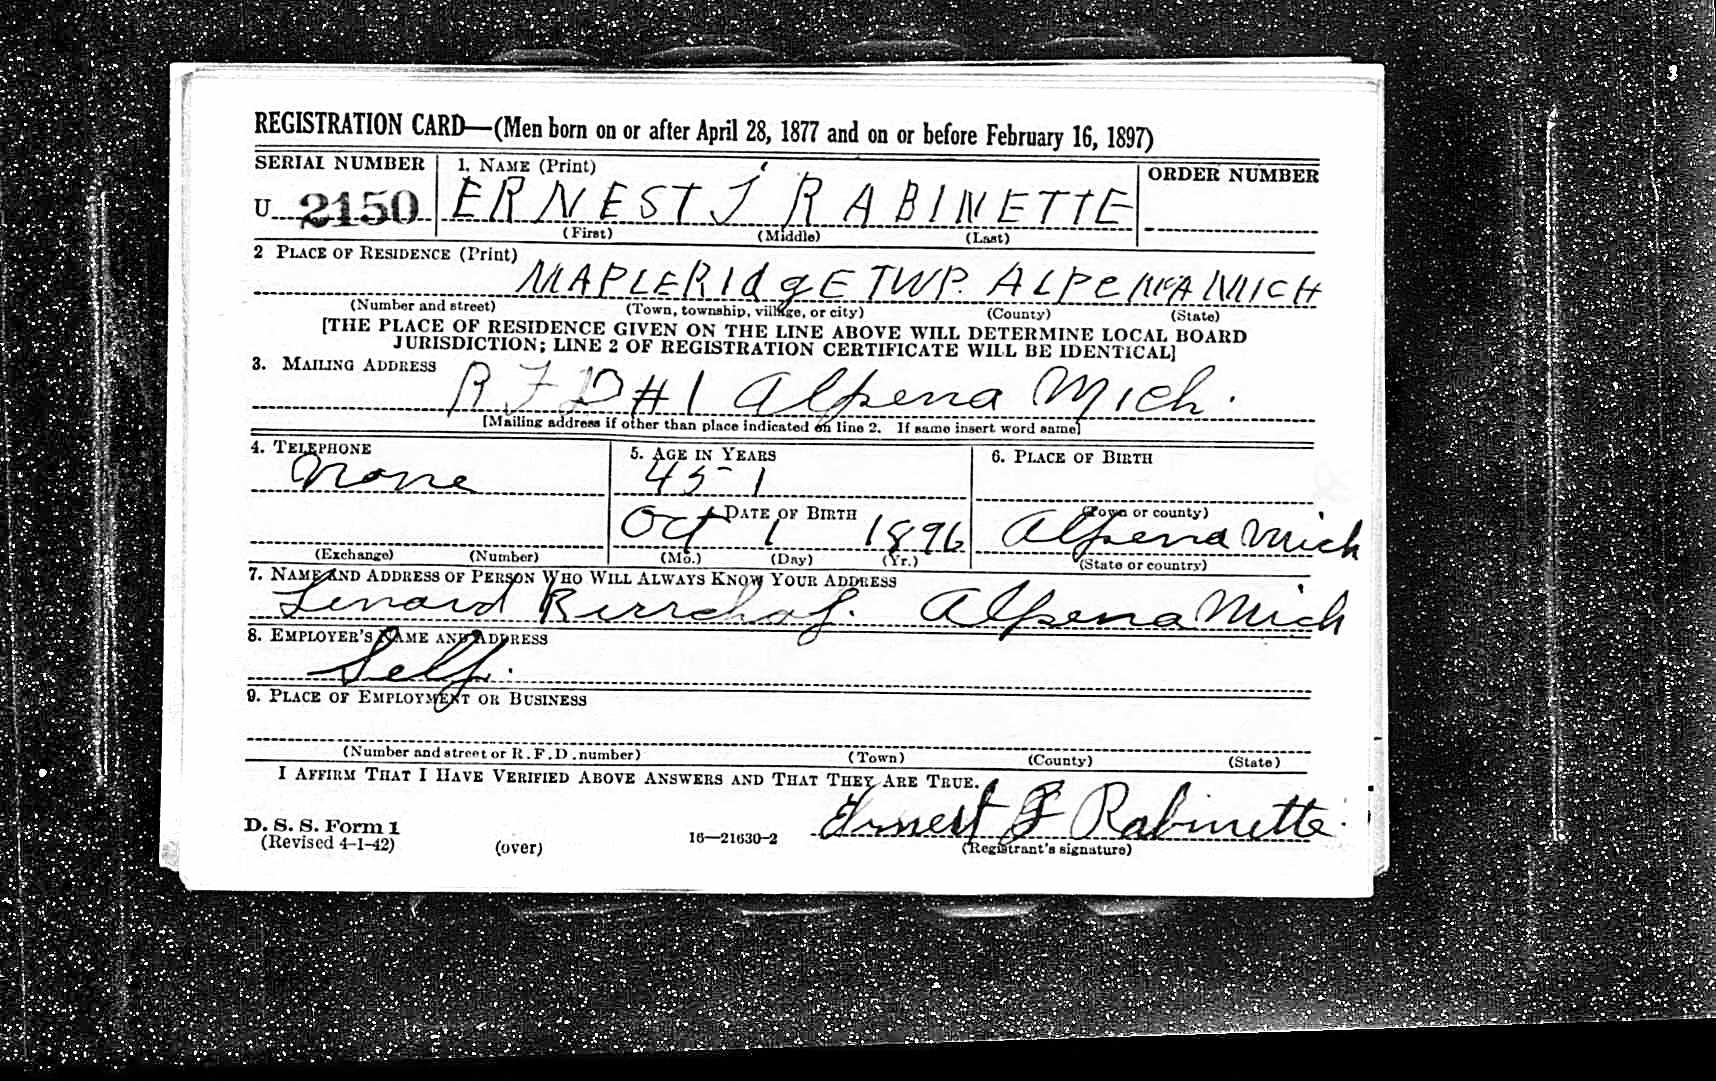 REGISTRATION CARD—(Men born on or after April 28, 1877 and on or before February 16, 1897)
SERIAL NUMBER 1. NAME (Print) ORDER NUMBER
U 2150 ERNEST J RABINETTE
(First) (Middle) (Last)
2 PLACE OF RESIDENCE (Print)
MAPLERIdgE TWP. ALPENA MICH
(Number and street) (Town, township, village, or city) (County) (State)
[THE PLACE OF RESIDENCE GIVEN ON THE LINE ABOVE WILL DETERMINE LOCAL BOARD
JURISDICTION; LINE 2 OF REGISTRATION CERTIFICATE WILL BE IDENTICAL]
3. MAILING ADDRESS
R F D #1 Alpena Mich.
[Mailing address if other than place indicated on line 2. If same insert word same]
4. TELEPHONE 5. AGE IN YEARS 6. PLACE OF BIRTH
None 45 1
DATE OF BIRTH (Town or county)
Oct 1 1896 Alpena Mich
(Exchange) (Number) (Mo.) (Day) (Yr.) (State or country)
7. NAME AND ADDRESS OF PERSON WHO WILL ALWAYS KNOW YOUR ADDRESS
Lenard Alpena Mich
8. EMPLOYER'S NAME AND ADDRESS
Self.
9. PLACE OF EMPLOYMENT OR BUSINESS
(Number and street or R. F. D. number) (Town) (County) (State)
I AFFIRM THAT I HAVE VERIFIED ABOVE ANSWERS AND THAT THEY ARE TRUE.
Ernest J Rabinette.
D. S. S. Form 1
(Revised 4-1-42) (over) 16—21630-2 (Registrant's signature)